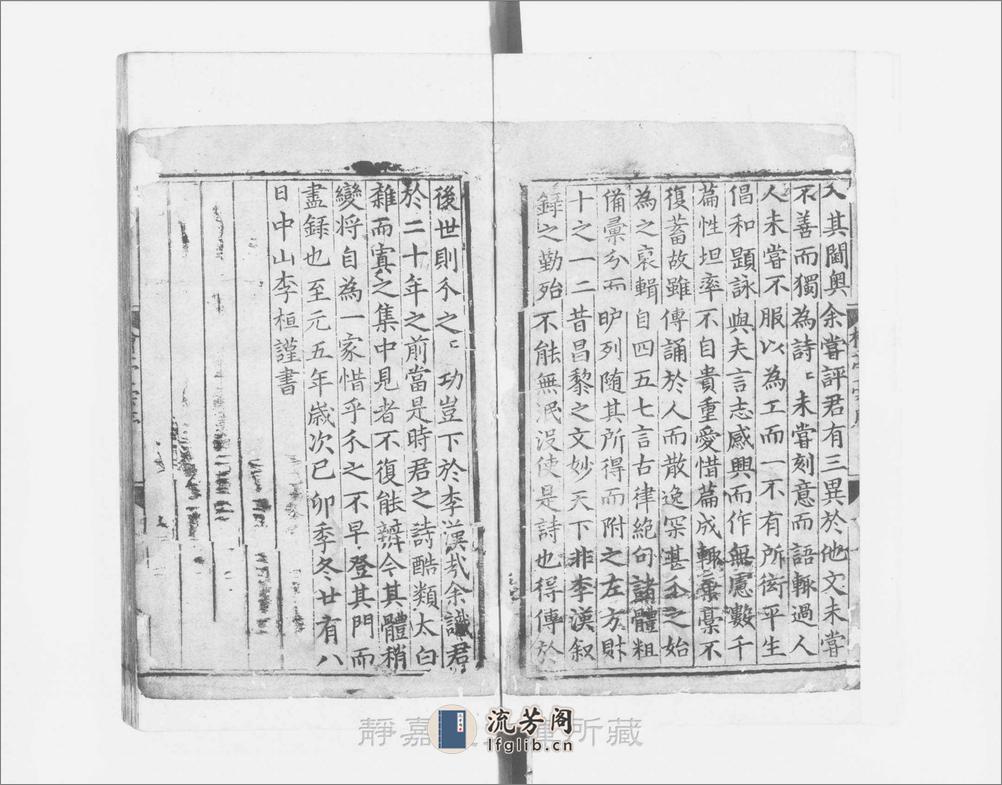 入其閫奥余嘗評君有三異於他文未嘗
不善而獨為詩〻未嘗刻意而語輒過人
人未嘗不服以為工而一不有所衒平生
倡和題詠與夫言志感興而作無慮數千
篇性坦率不自貴重愛惜篇成輒棄藁不
復蓄故雖傳誦於人而散逸罙甚仌之始
為之裒輯自四五七言古律絶句諸體粗
備彙分而胪列随其所得而附之左方財
十之一二昔昌黎之文妙天下非李漢叙
録之勤殆不能無泯没使是詩也得傳於
後世則仌之〻功豈下於李漢㢤余識君
於二十年之前當是時君之詩酷類太白
雜而寘之集中見者不復能辨今其體稍
變将自為一家惜乎仌之不早登其門而
盡録也至元五年歳次己卯季冬廿有八
日中山李桓謹書
靜嘉 所藏
流芳阁
lfglib.cn